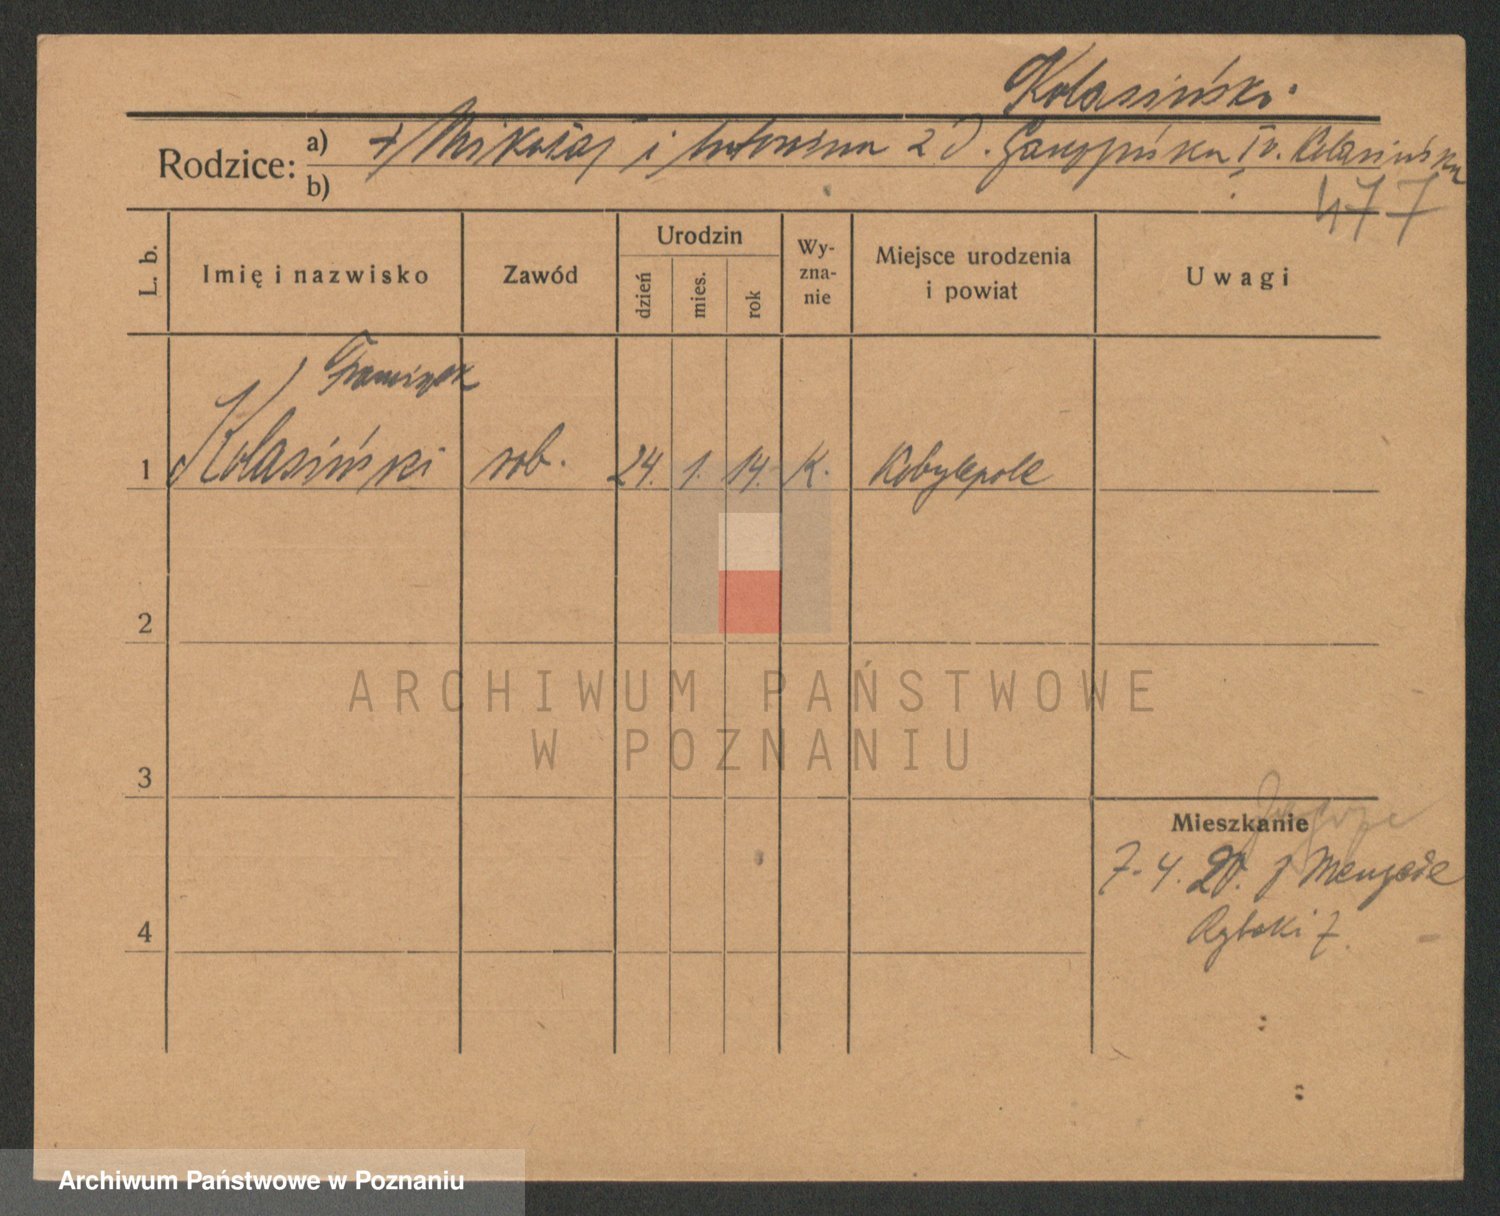 Kolasiński.
Rodzice: a) + Mikołaj i Antonina 2 v. I v. Kolasińska
b)
477
L. b.
Imię i nazwisko
Zawód
Urodzin
dzień
mies.
rok
Wy-
zna-
nie
Miejsce urodzenia
i powiat
Uwagi
Franciszek
1 Kolasiński rob. 24. 1. 14. K. Kobylepole
2
3
4
Mieszkanie
7. 4. 20. Mengede
Rybaki 7.
ARCHIWUM PAŃSTWOWE
W POZNANIU
Archiwum Państwowe w Poznaniu